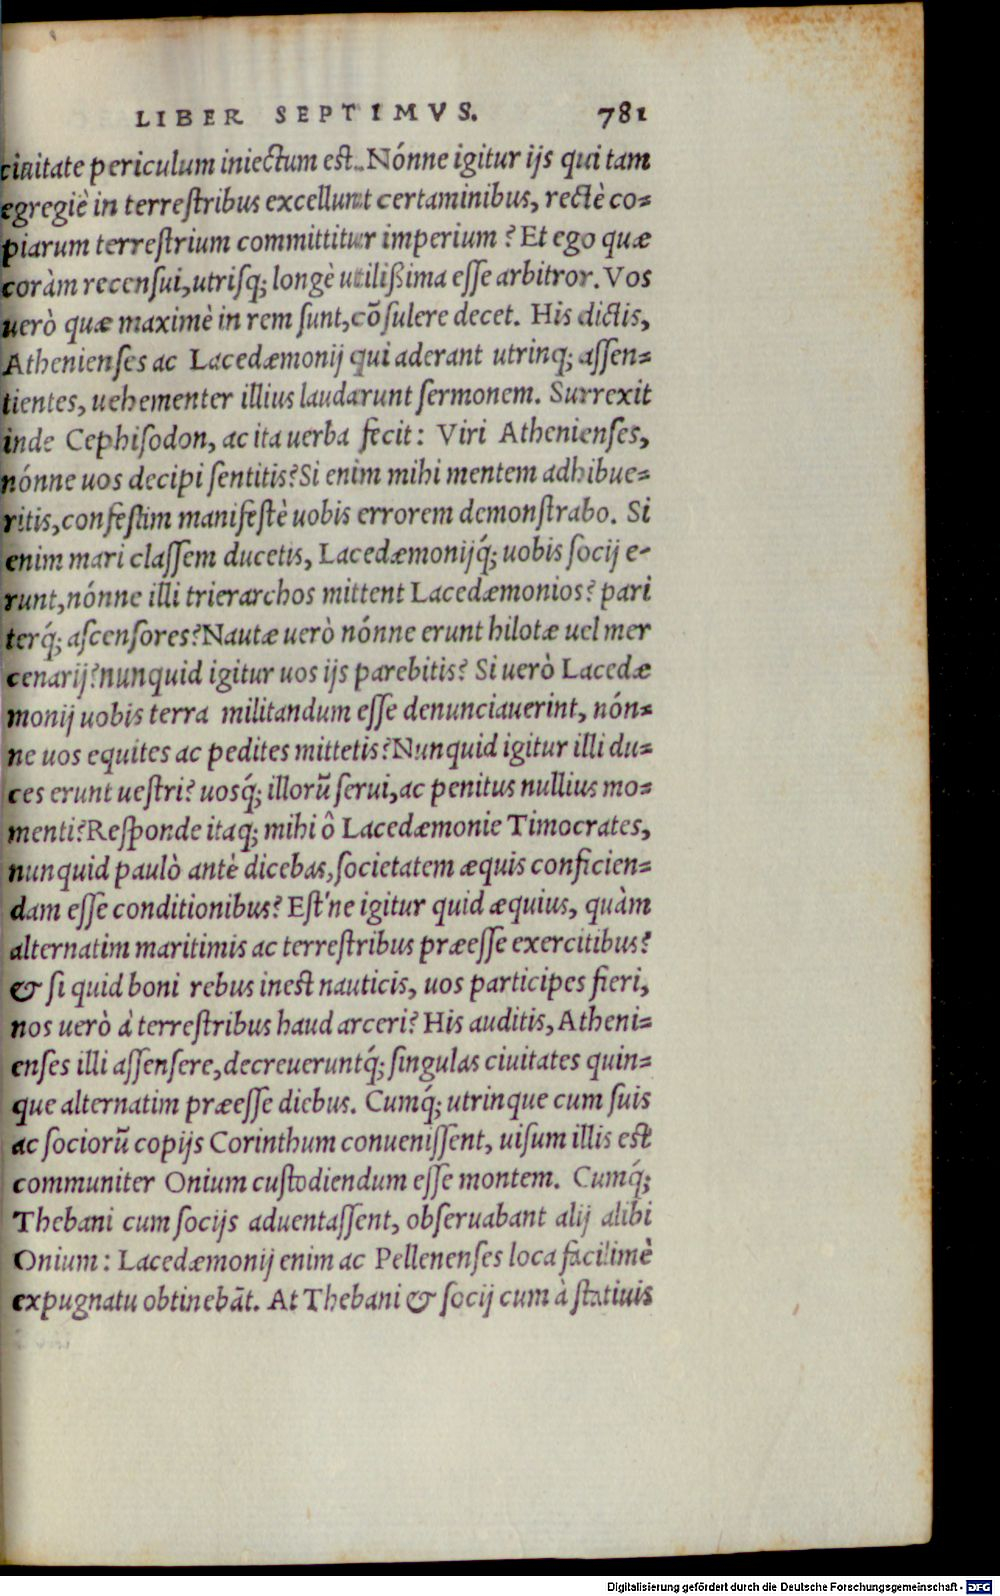 LIBER SEPTIMVS. 781
ciuitate periculum iniectum est. Nónne igitur ijs qui tam
egregiè in terrestribus excellunt certaminibus, rectè co=
piarum terrestrium committitur imperium? Et ego quæ
coràm recensui, utrisq; longè utilißima esse arbitror. Vos
uerò quæ maximè in rem sunt, cõsulere decet. His dictis,
Athenienses ac Lacedæmonij qui aderant utrinq; assen=
tientes, uehementer illius laudarunt sermonem. Surrexit
inde Cephisodon, ac ita uerba fecit: Viri Athenienses,
nónne uos decipi sentitis? Si enim mihi mentem adhibue=
ritis, confestim manifestè uobis errorem demonstrabo. Si
enim mari classem ducetis, Lacedæmonijq́; uobis socij e-
runt, nónne illi trierarchos mittent Lacedæmonios? pari
terq́; ascensores? Nautæ uerò nónne erunt hilotæ uel mer
cenarij? nunquid igitur uos ijs parebitis? Si uerò Lacedæ
monij uobis terra militandum esse denunciauerint, nón=
ne uos equites ac pedites mittetis? Nunquid igitur illi du=
ces erunt uestri? uosq́; illorũ serui, ac penitus nullius mo=
menti? Responde itaq; mihi ô Lacedæmonie Timocrates,
nunquid paulò antè dicebas, societatem æquis conficien=
dam esse conditionibus? Est'ne igitur quid æquius, quàm
alternatim maritimis ac terrestribus præesse exercitibus?
& si quid boni rebus inest nauticis, uos participes fieri,
nos uerò à terrestribus haud arceri? His auditis, Atheni=
enses illi assensere, decreueruntq́; singulas ciuitates quin=
que alternatim præesse diebus. Cumq́; utrinque cum suis
ac sociorũ copijs Corinthum conuenissent, uisum illis est
communiter Onium custodiendum esse montem. Cumq́;
Thebani cum socijs aduentassent, obseruabant alij alibi
Onium: Lacedæmonij enim ac Pellenenses loca facilimè
expugnatu obtinebãt. At Thebani & socij cum à statiuis
Digitalisierung gefördert durch die Deutsche Forschungsgemeinschaft - DFG